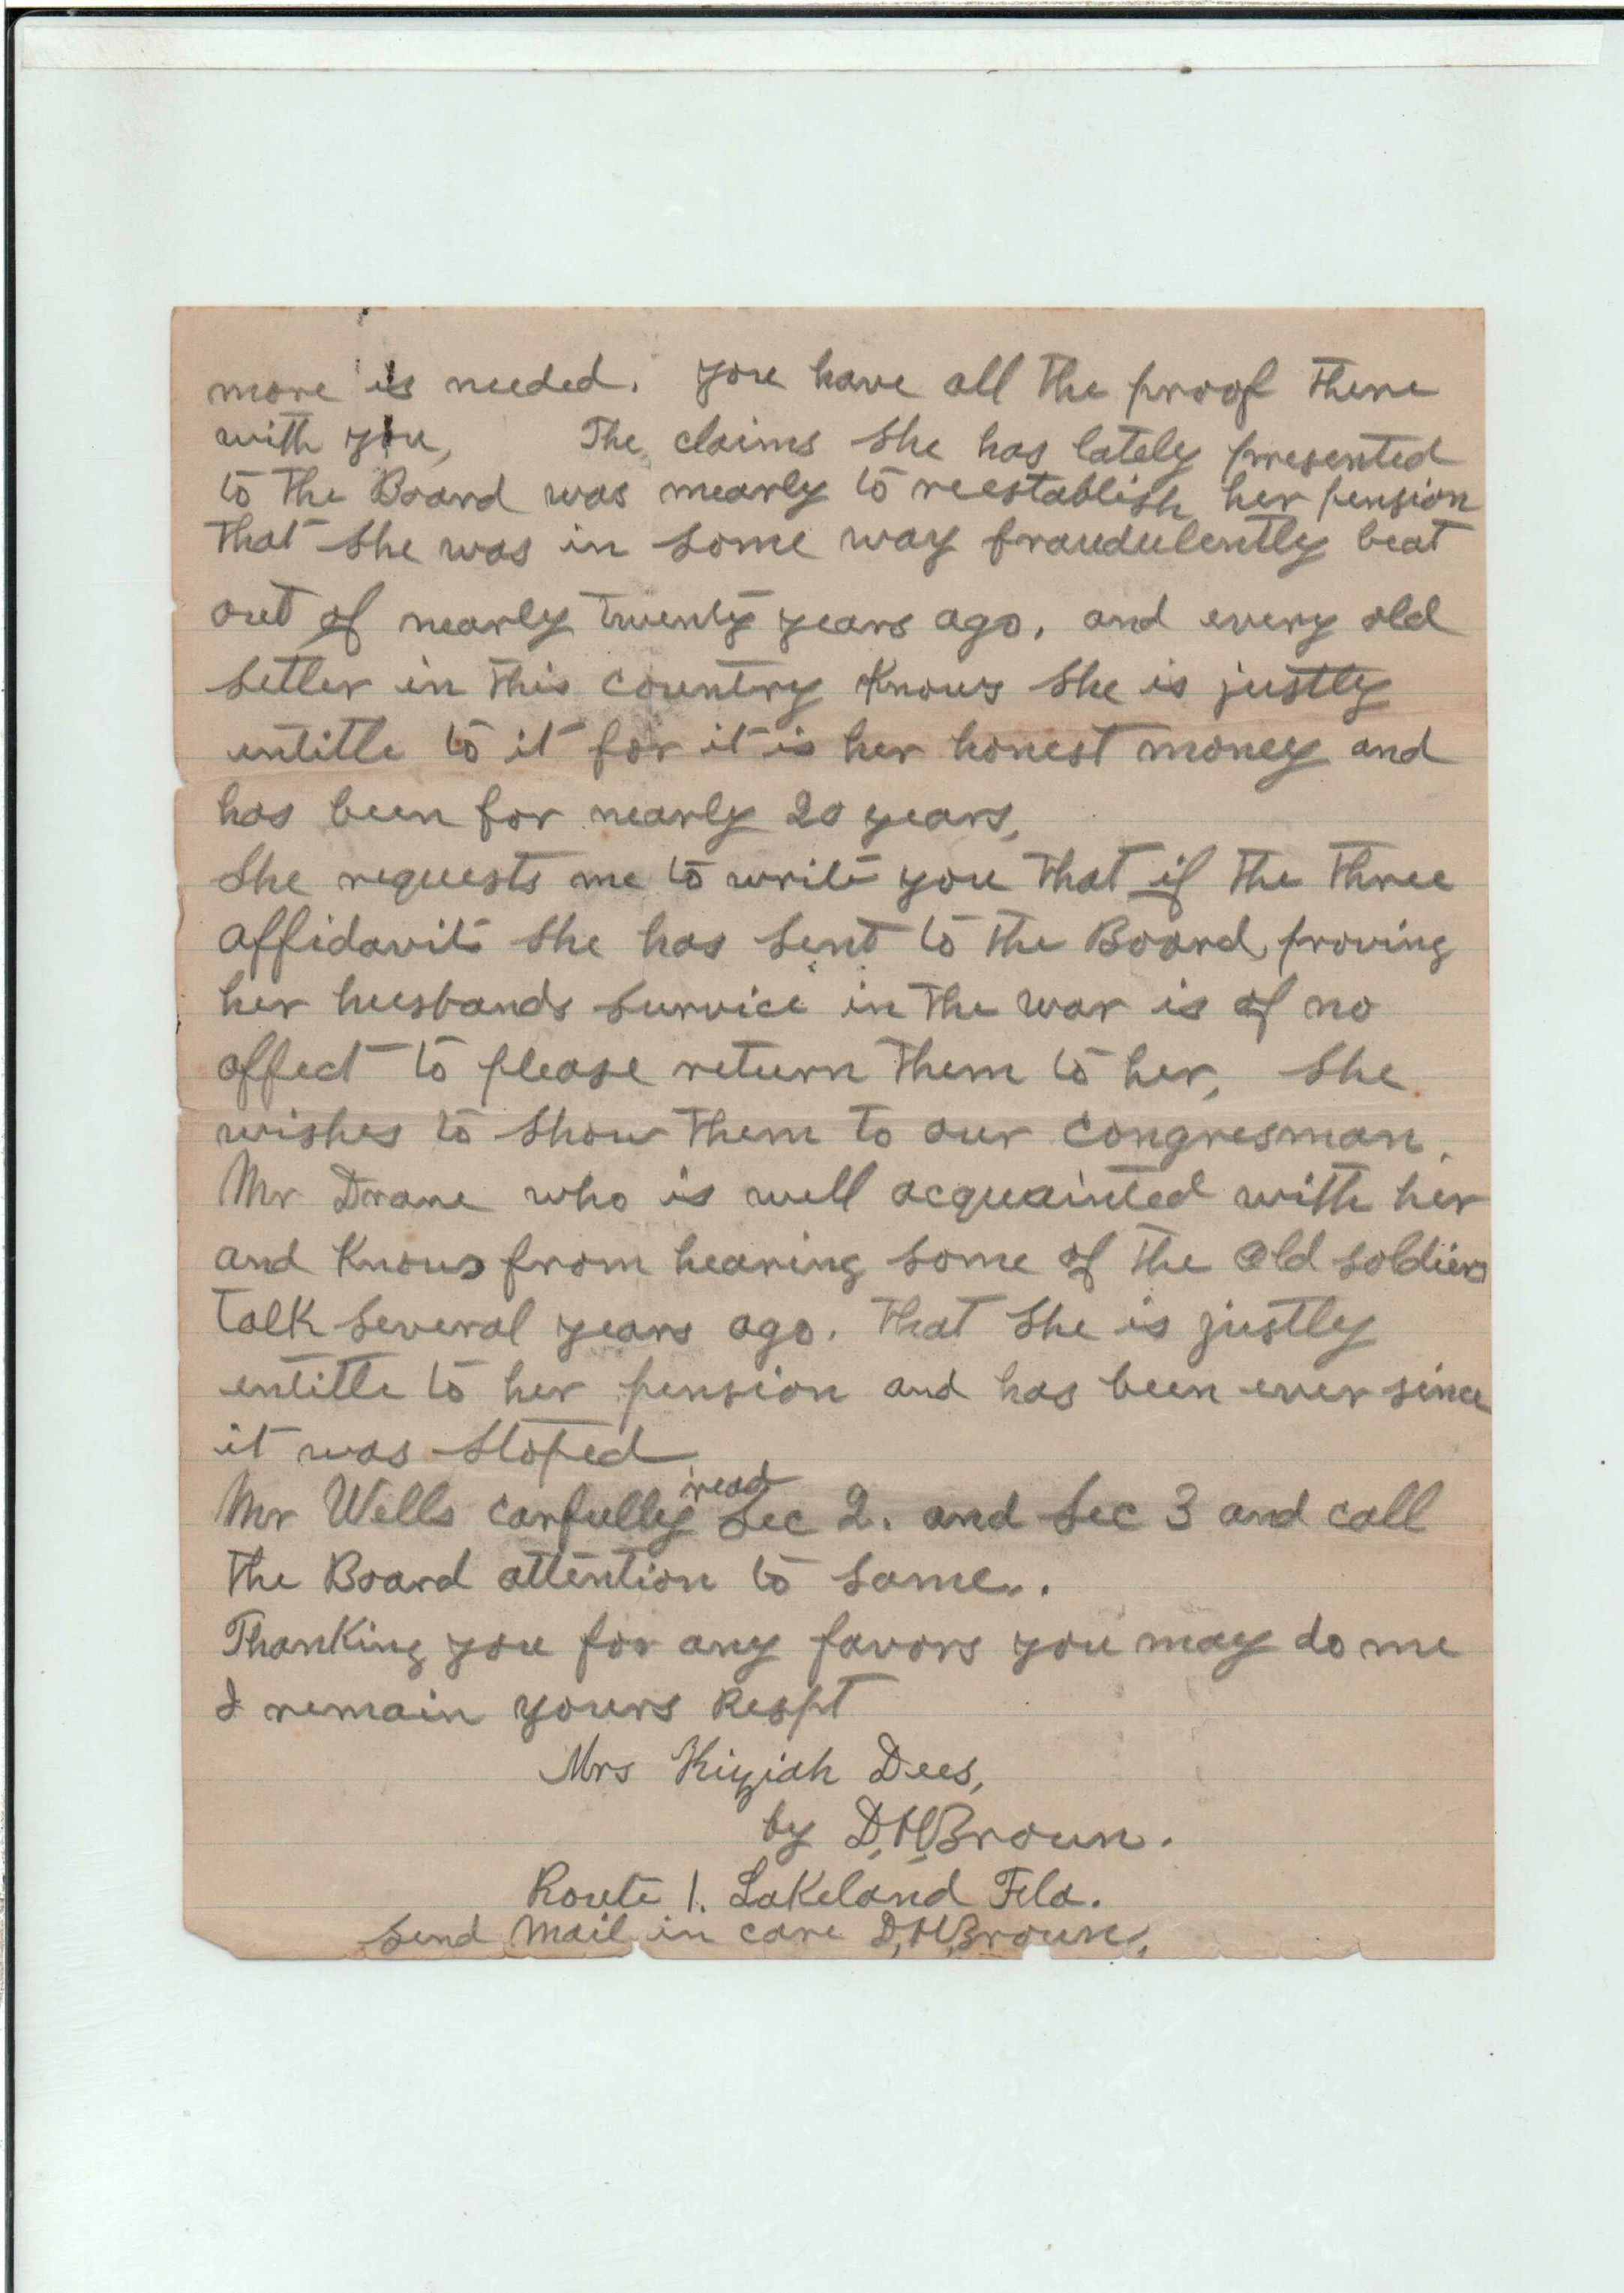 more is needed. you have all the proof there
with you, The claims she has lately presented
to the Board was mearly to reestablish her pension
that she was in some way fraudulently beat
out of nearly twenty years ago, and every old
setler in this country knows she is justly
entitle to it for it is her honest money and
has been for nearly 20 years,
She requests me to write you that if the three
affidavits she has sent to the Board proving
her husbands survice in the war is of no
affect to please return them to her, she
wishes to show them to our congresman.
Mr Drane who is well acquainted with her
and knows from hearing some of the old soldiers
talk several years ago. that she is justly
entitle to her pension and has been ever since
it was stoped
Mr Wells carfully read Sec 2. and Sec 3 and call
the Board attention to same..
Thanking you for any favors you may do me
I remain yours Respt
Mrs Kiziah Dees,
by D,H,Broun.
Route 1. Lakeland Fla.
send mail in care D,H,Broun,